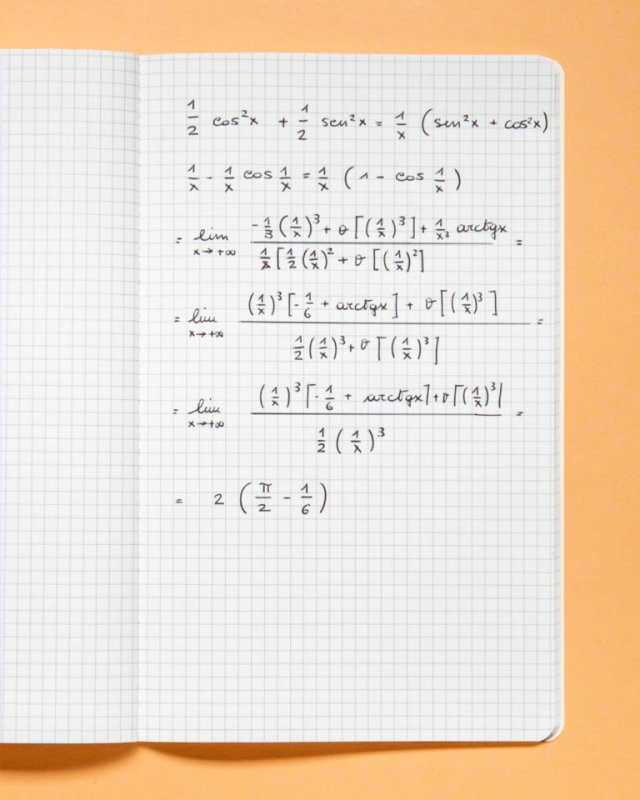 1/2 cos²x + 1/2 sen²x = 1/x (sen²x + cos²x)
1/x - 1/x cos 1/x = 1/x (1 - cos 1/x)
= lim x→+∞ (-1/3 (1/x)³ + o[(1/x)³] + 1/x³ arctgx) / (1/x [1/2 (1/x)² + o[(1/x)²]) =
= lim x→+∞ ((1/x)³ [-1/6 + arctgx] + o[(1/x)³]) / (1/2 (1/x)³ + o[(1/x)³]) =
= lim x→+∞ ((1/x)³ [-1/6 + arctgx] + o[(1/x)³]) / (1/2 (1/x)³) =
= 2 (π/2 - 1/6)